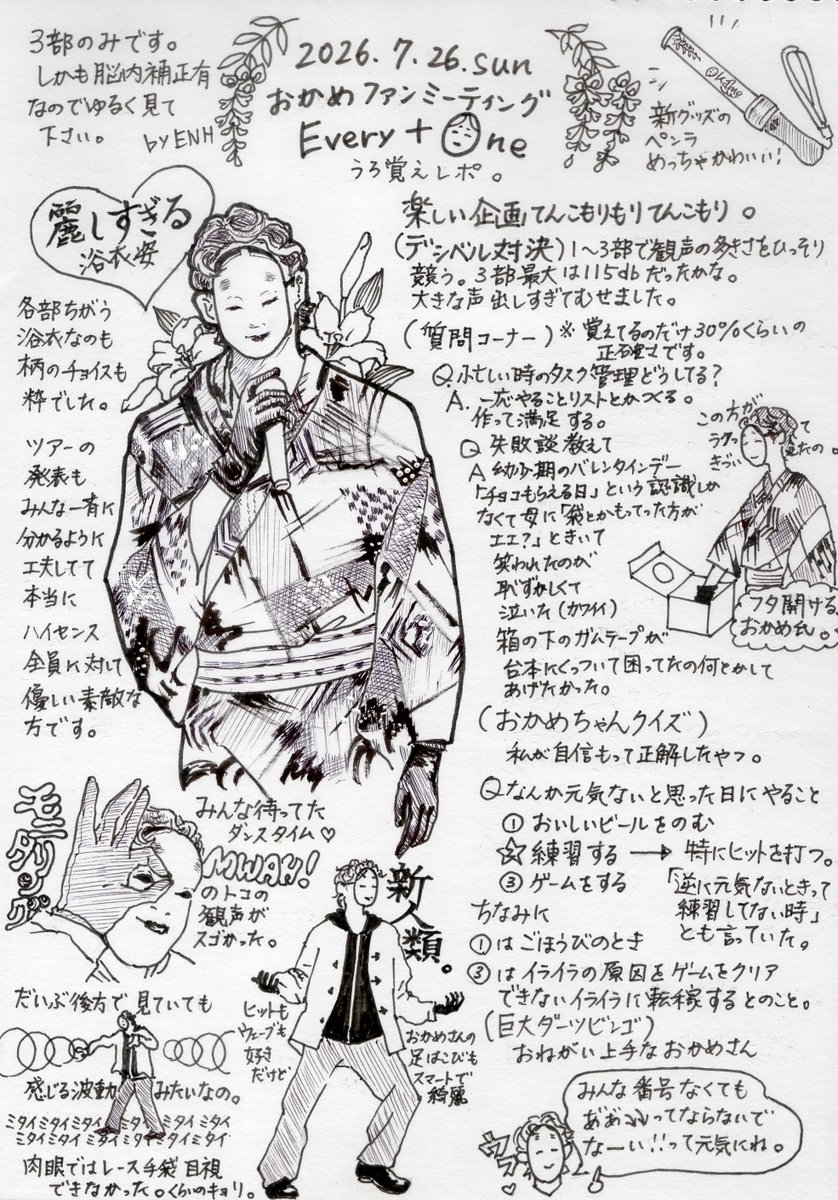 3部のみです。
しかも脳内補正有
なのでゆるく見て
下さい。
by ENH
2026.7.26.sun
おかめファンミーティング
Every + One
うろ覚えレポ。
Okame
新グッズの
ペンラ
めっちゃかわいい!
麗しすぎる
浴衣姿
各部ちがう
浴衣なのも
柄のチョイスも
粋でした。
ツアーの
発表も
みんな一斉に
分かるように
工夫してて
本当に
ハイセンス
全員に対して
優しい素敵な
方です。
楽しい企画てんこもりもりてんこもり。
(デシベル対決)1〜3部で観声の多きさをひっそり
競う。3部最大は115dbだったかな。
大きな声出しすぎてむせました。
(質問コーナー)※覚えてるのだけ30%くらいの
正確さです。
Q.忙しい時のタスク管理どうしてる?
A.一応やることリストとかつくる。
作って満足する。
Q 失敗談教えて
A 幼少期のバレンタインデー
「チョコもらえる日」という認識しか
なくて母に「袋とかもってった方が
エエ?」ときいて
笑われたのが
恥ずかしくて
泣いた(カワイイ)
箱の下のガムテープが
台本にくっついて困ってたの何とかして
あげたかった。
この方が
きづい
フタ開ける
おかめ氏。
(おかめちゃんクイズ)
私が自信もって正解したやつ。
Qなんか元気ないと思った日にやること
①おいしいビールをのむ
☆練習する → 特にヒットを打つ。
③ゲームをする
「逆に元気ないときって
練習してない時」
とも言っていた。
ちなみに
①はごほうびのとき
③はイライラの原因をゲームをクリア
できないイライラに転嫁するとのこと。
(巨大ダーツビンゴ)
おねがい上手なおかめさん
みんな番号なくても
って元気にね。
モニタリング
みんな待ってた
ダンスタイム♡
MWAH!
のトコの
観声が
スゴかった。
新人類。
ヒットも
ウェーブも
好き
だけど
おかめさんの
足はこびも
スマートで
綺麗
だいぶ後方で見ていても
感じる波動 みたいなの。
ミタイミタイミタイ ミタイミタイ
ミタイミタイミタイミタイミタイミタイ
肉眼ではレース手袋目視
できなかった。くらいのキョリ。